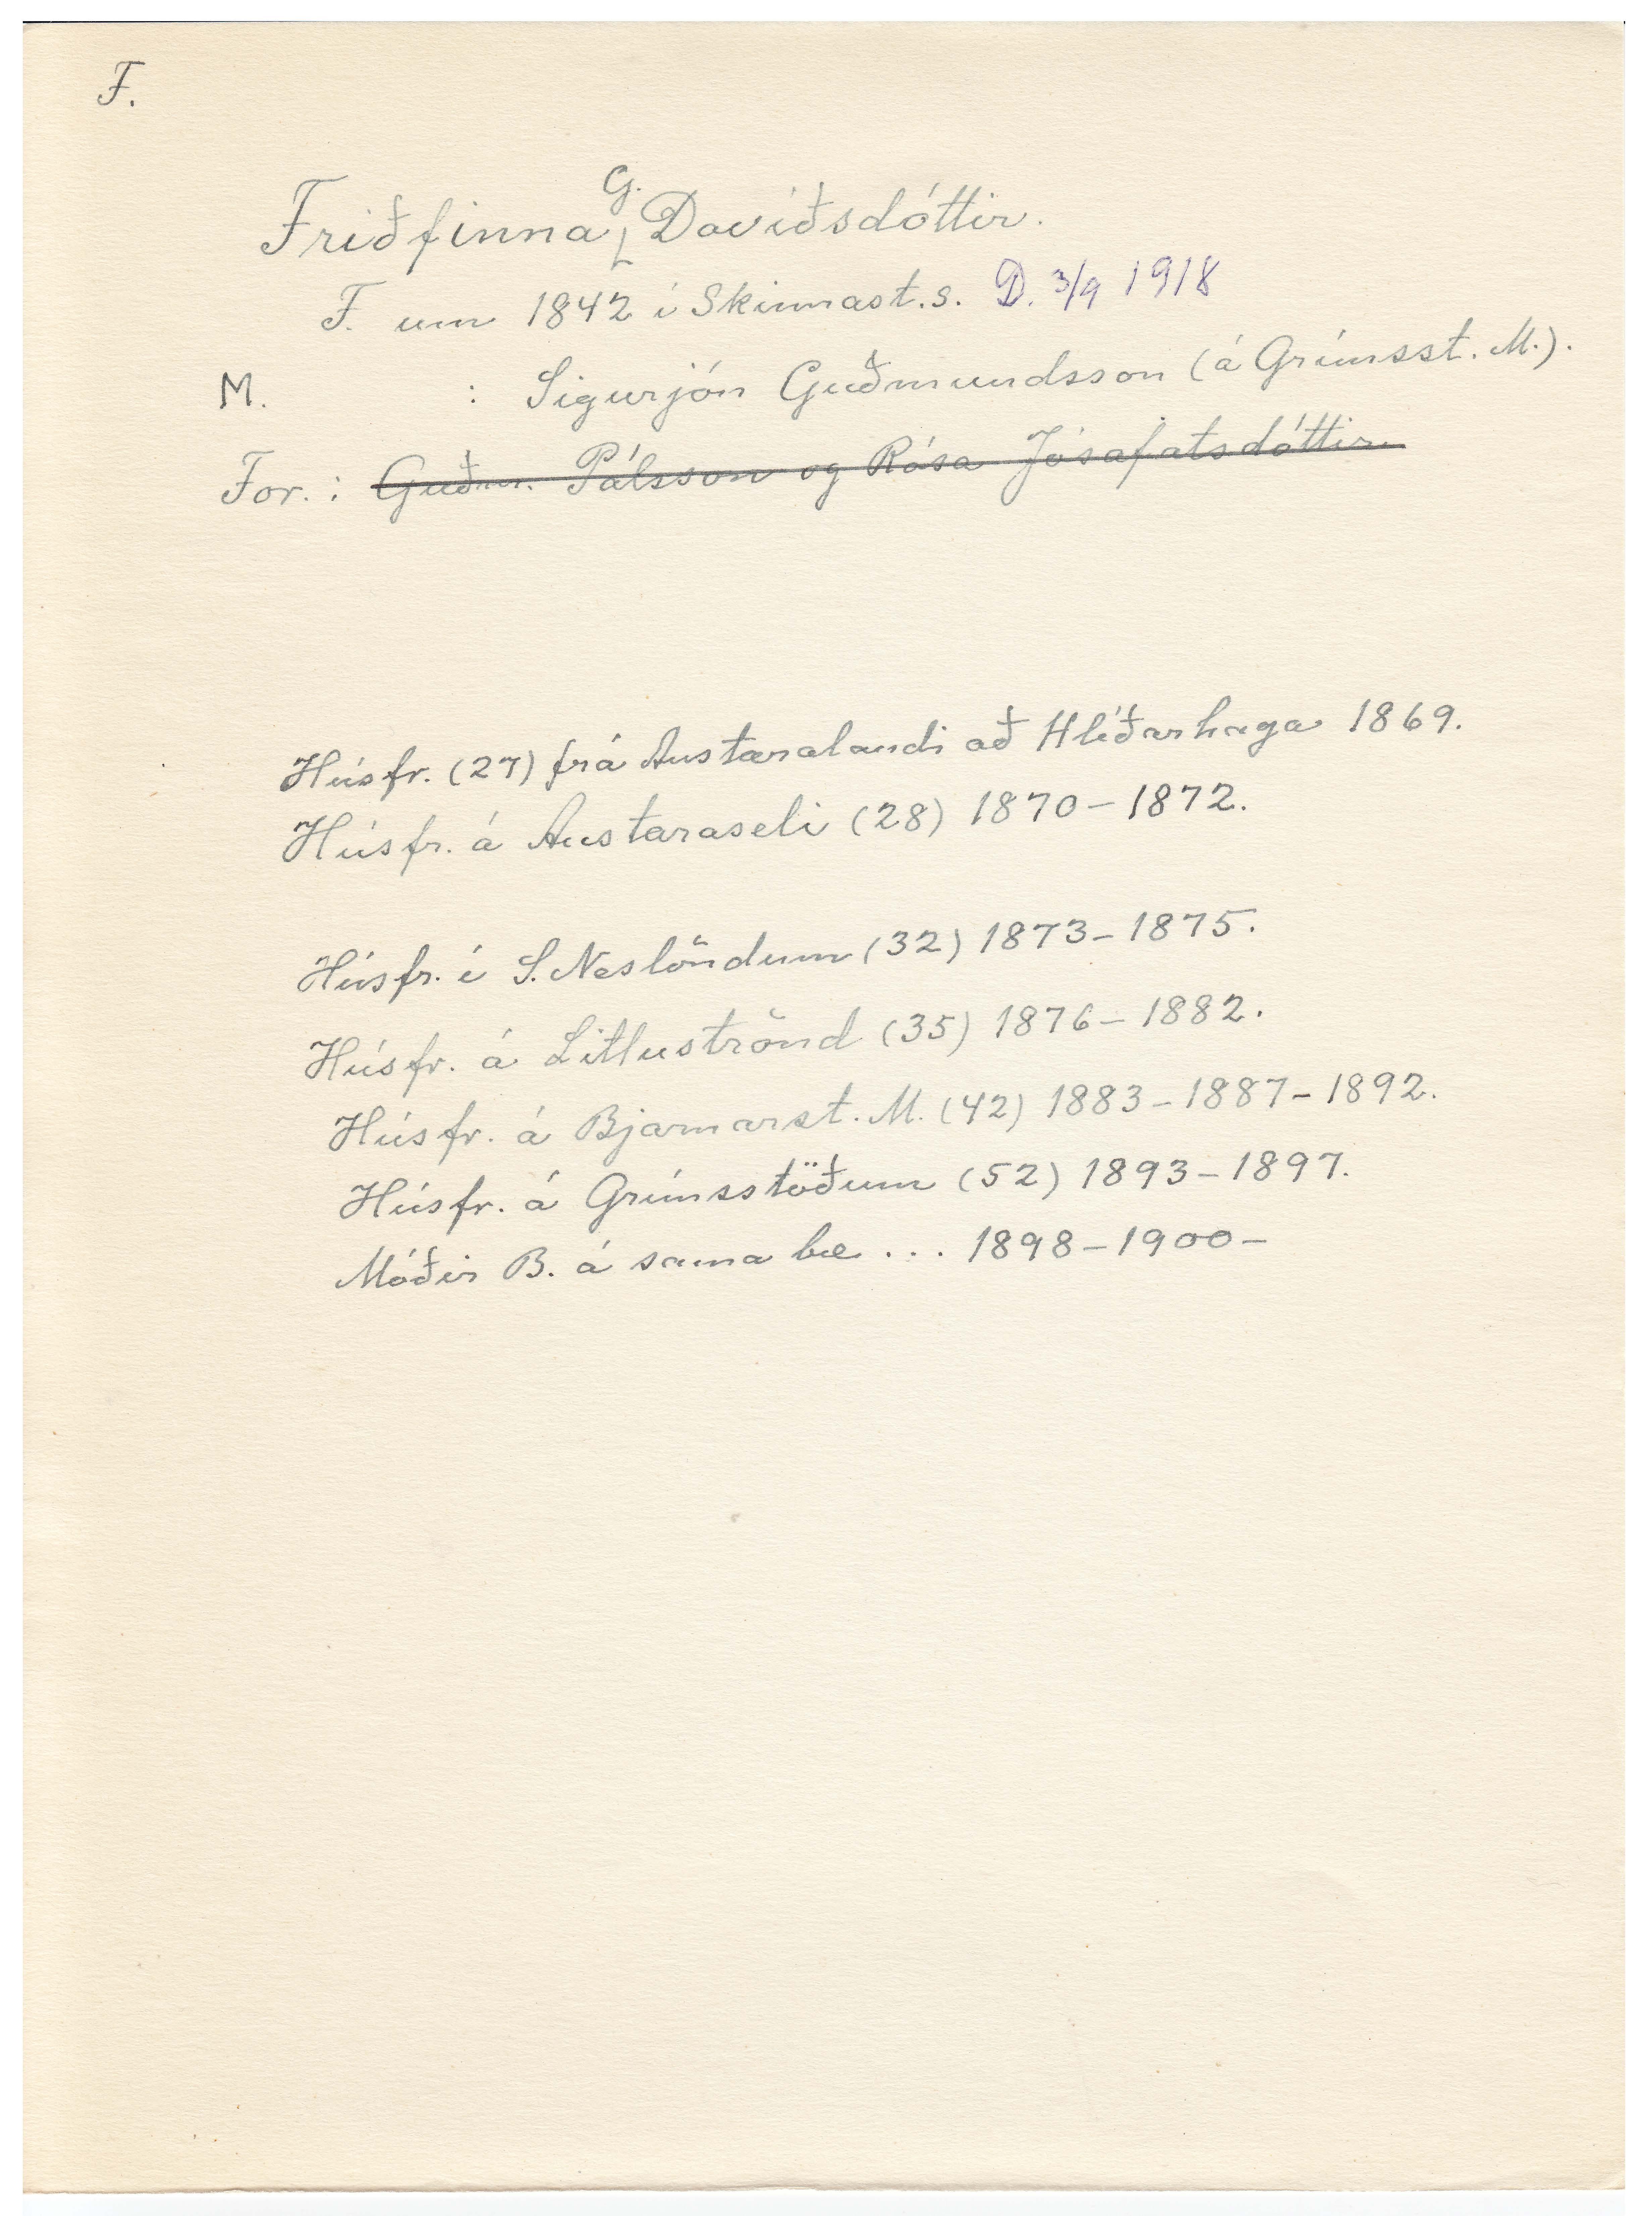 F.
Friðfinna G. Davíðsdóttir.
F. um 1842 í Skinnast.s. D. 3/9 1918
M. : Sigurjón Guðmundsson (á Grímsst. M.).
For.: Guðm. Pálsson og Rósa Jósafatsdóttir
Húsfr. (27) frá Austaralandi að Hlíðarhaga 1869.
Húsfr. á Austaraseli (28) 1870-1872.
Húsfr. í S. Neslöndum (32) 1873-1875.
Húsfr. á Litluströnd (35) 1876-1882.
Húsfr. á Bjarnarst. M. (42) 1883-1887-1892.
Húsfr. á Grímsstöðum (52) 1893-1897.
Móðir B. á sama bæ ... 1898-1900-